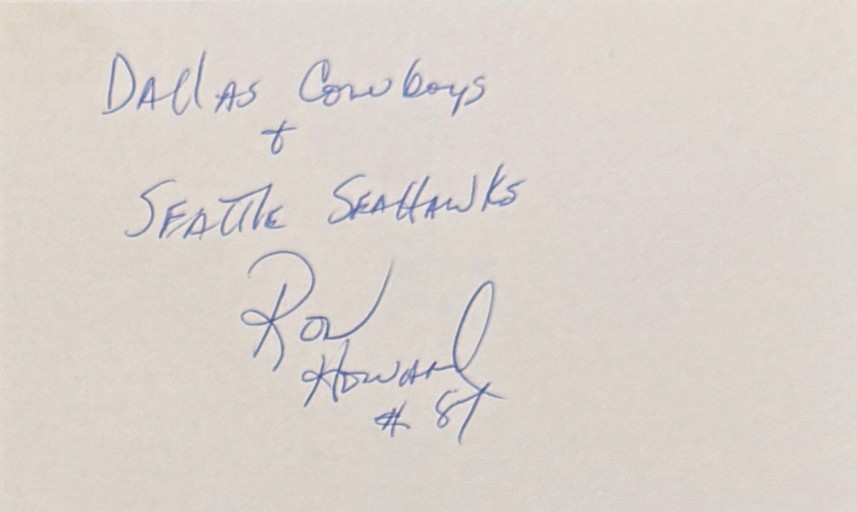 Dallas Cowboys
+
Seattle Seahawks
Ron
Howard
# 87